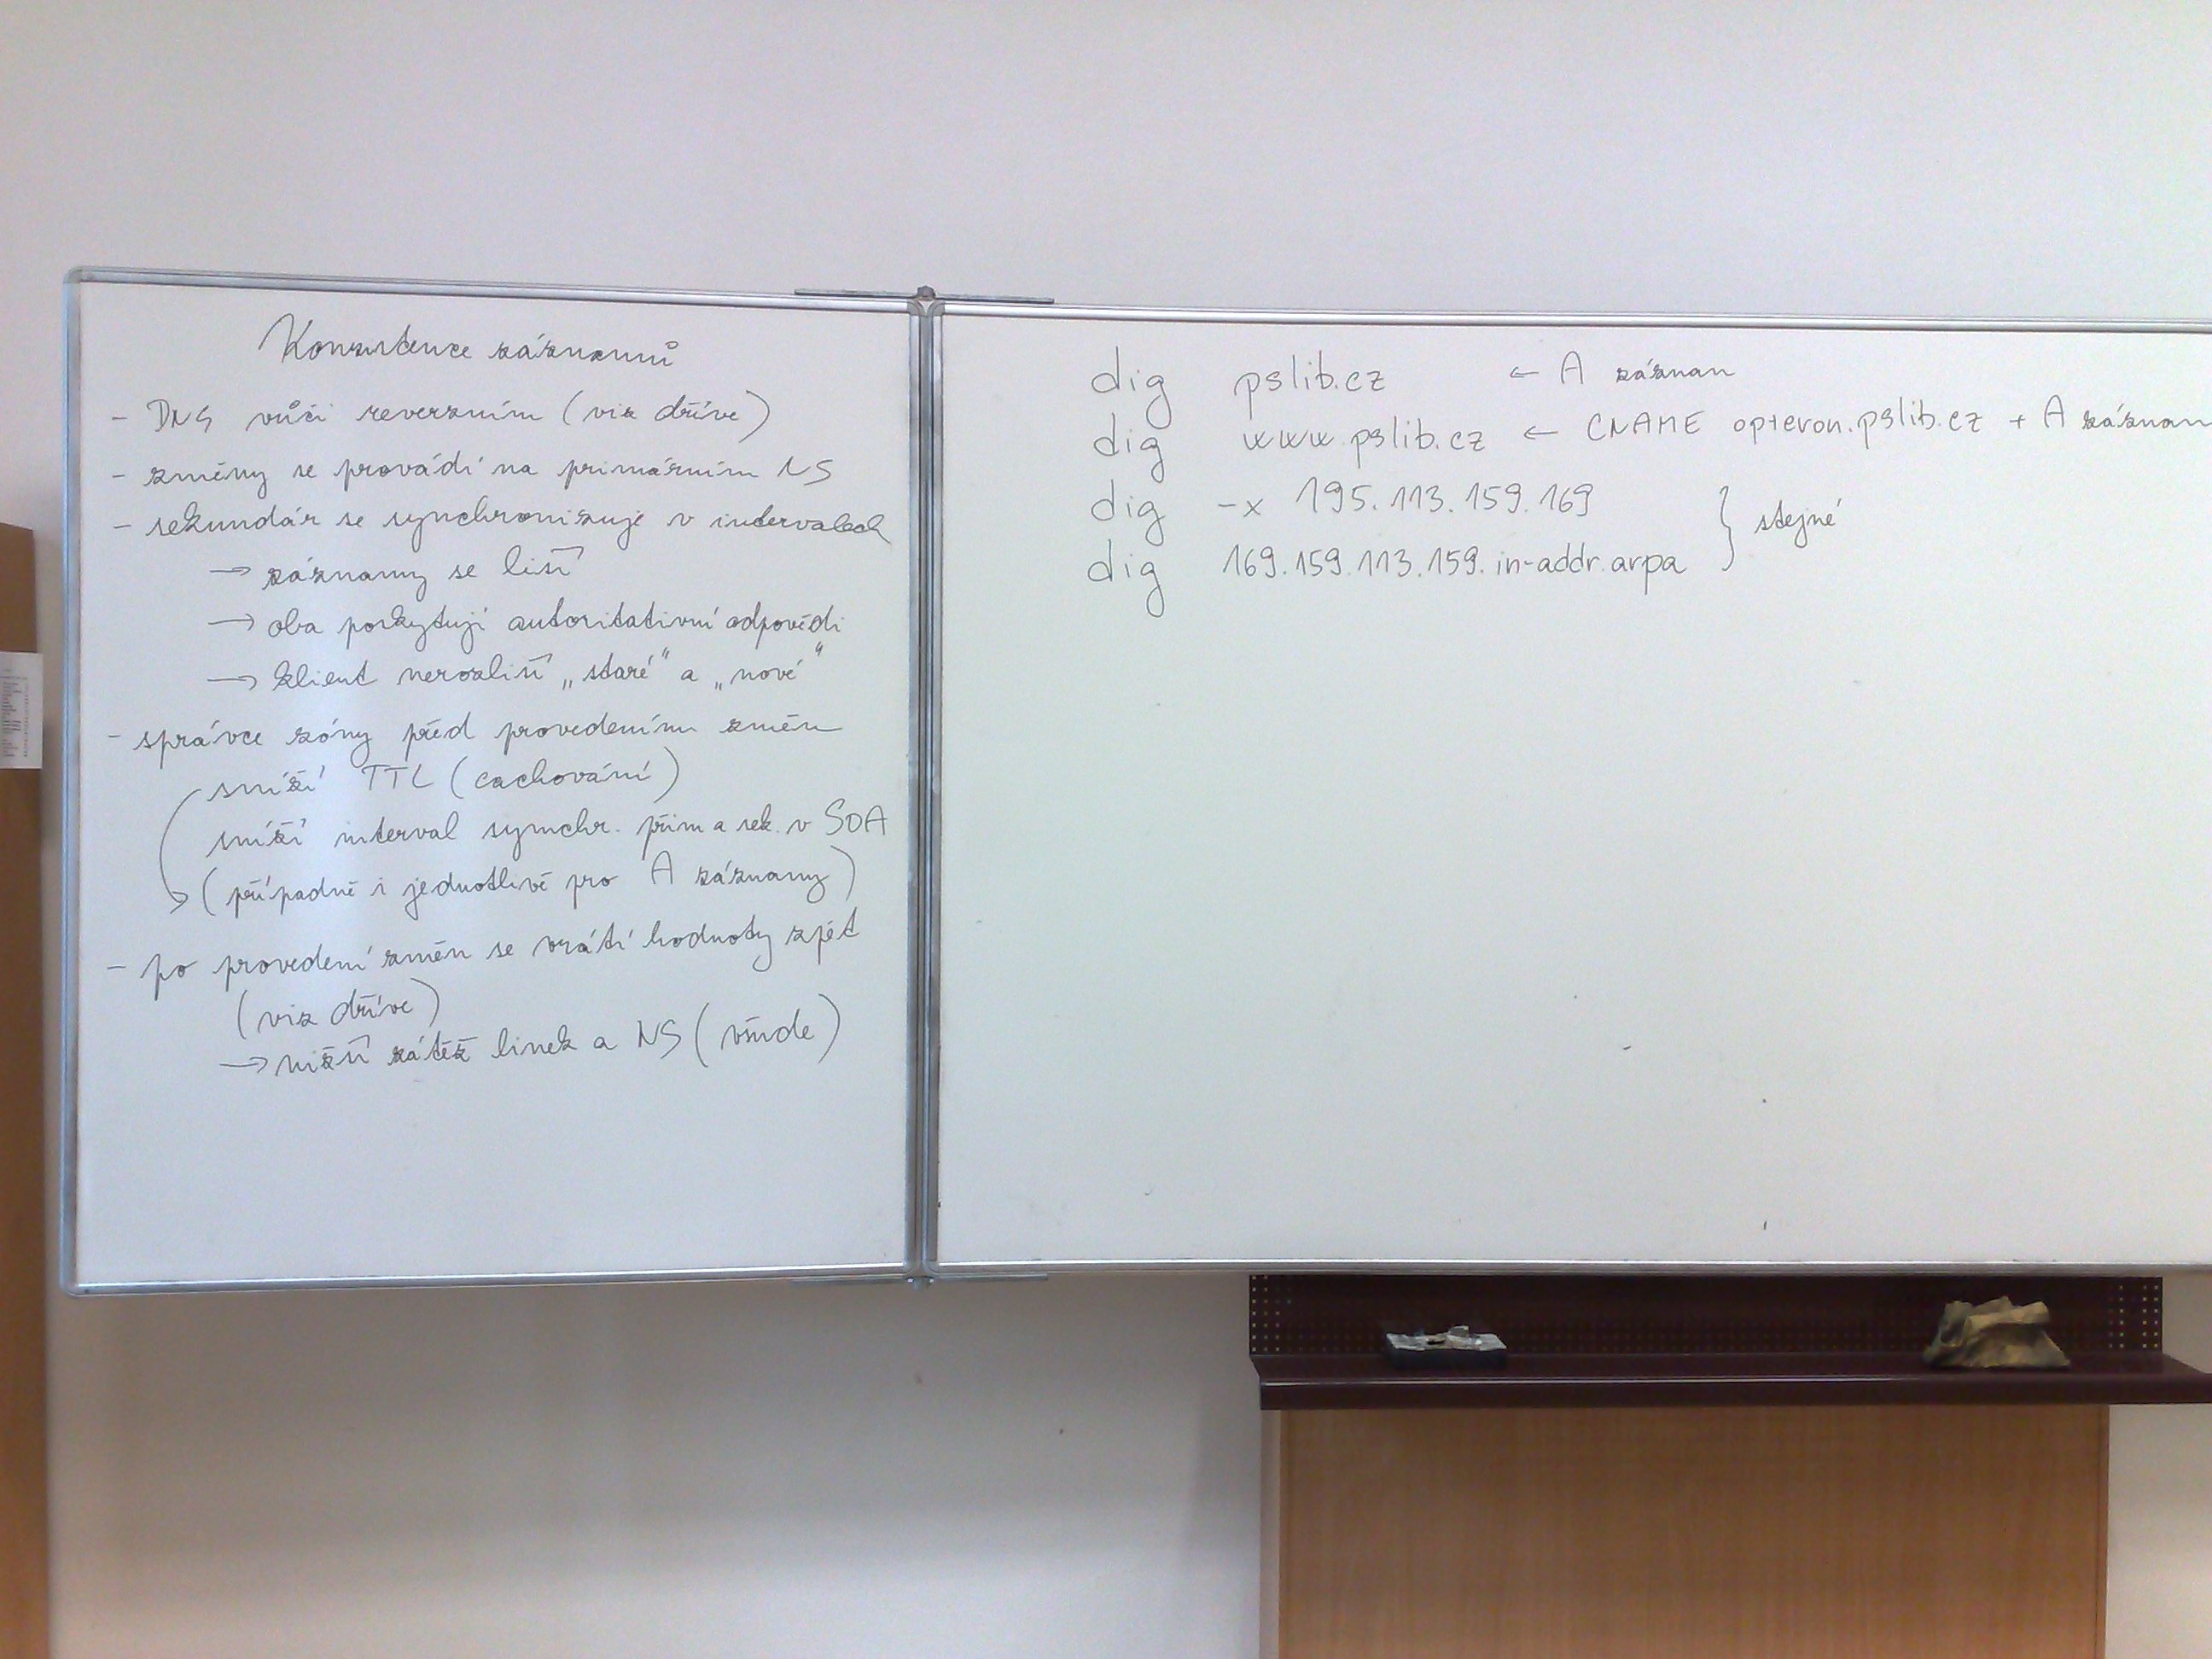 Konzistence záznamů
- DNS vůči reverzním (viz dříve)
- změny se provádí na primárním NS
- sekundár se synchronizuje v intervalech
→ záznamy se liší
→ oba poskytují autoritativní odpovědi
→ klient nerozliší „staré“ a „nové“
- správce zóny před provedením změn
sníží TTL (cachování)
sníží interval synchr. prim a sek. v SOA
(případně i jednotlivě pro A záznamy)
- po provedení změn se vrátí hodnoty zpět
(viz dříve)
→ nižší zátěž linek a NS (všude)
dig pslib.cz ← A záznam
dig www.pslib.cz ← CNAME opteron.pslib.cz + A záznam
dig -x 195.113.159.169
dig 169.159.113.159.in-addr.arpa } stejné